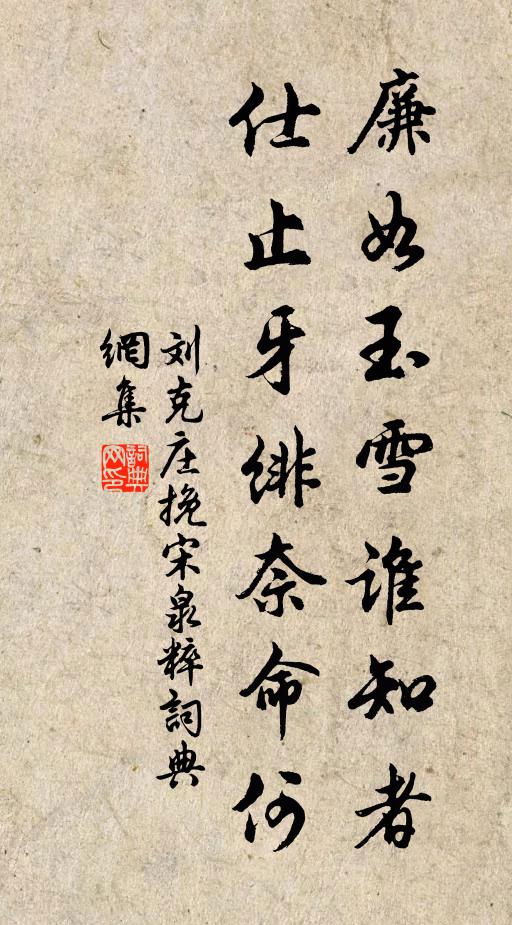 廉如玉雪谁知者
仕止牙绯奈命何
刘克庄挽宋泉粹詞典
網集
詞典
网印